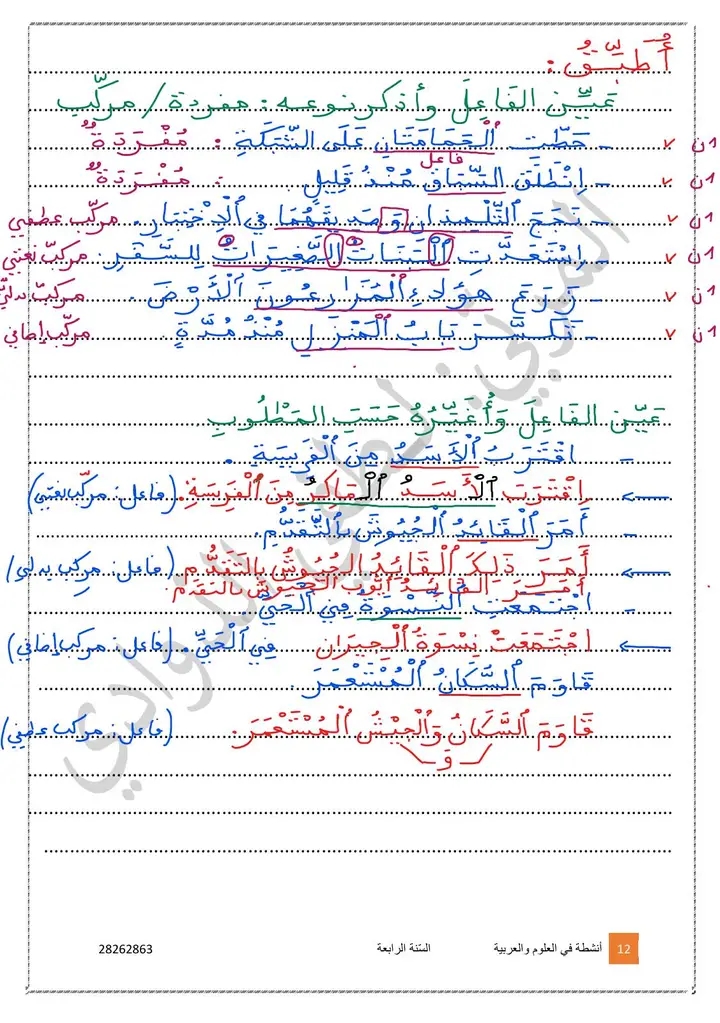 أُطَبِّقُ :
عَيِّن الفَاعِلَ وأذكر نوعه : مفردة / مركّب
1ن ✓ - حَطّت الْحَمَامَتَانِ عَلَى الشَّبَكَةِ : مُفْرَدَة
فاعل
1ن ✓ - اِنْطَلَقَ السّبَّاقُ مُنْذُ قَلِيلٍ : مُفْرَدَة
1ن ✓ - نَجَحَ التِّلْمِيذَانِ وَ صَدِيقَهُمَا فِي الْاِخْتِبَارِ. مركّب عطفي
1ن ✓ - اِسْتَعَدَّتِ الْبَنَاتُ الصَّغِيرَاتُ لِلسَّفَرِ. مركّب نعتي
1ن ✓ - زَرَعَ هَؤلاءِ الْمُزَارِعُونَ الْأَرْضَ. مركّب بدلي
1ن ✓ - تَكَسَّرَ بَابُ الْمَنْزِلِ مُنْذُ مُدَّةٍ. مركّب إضافي
عَيِّن الفَاعِلَ وَأُغَيِّرُهُ حَسَبَ المَطْلُوبِ
- اقْتَرَبَ الْأَسَدُ مِنَ الْفَرِيسَةِ.
← اِقْتَرَبَ الْأَسَدُ الْمَاكِرُ مِنَ الْفَرِيسَةِ. (فاعل: مركّب نعتي)
- أَمَرَ الْقَائِدُ الْجُيُوشَ بِالتَّقَدُّمِ.
← أَمَرَ ذَلِكَ الْقَائِدُ الجُيُوشُ بِالتَّقَدُّمِ (فاعل: مركّب بدلي)
أمَرَ القائِدُ أيّوب الْجُيُوشَ بالتقدّم
- اجْتَمَعَتِ النِّسْوَةُ فِي الْحَيِّ
← اجْتَمَعَتْ نِسْوَةُ الْجِيرَان فِي الْحَيِّ. (فاعل: مركب إضافي)
قَاوَمَ السُّكَّانُ الْمُسْتَعْمَرَ.
قَاوَمَ السُّكَّانُ وَالْجَيْشُ الْمُسْتَعْمَرَ. (فاعل: مركب عطفي)
و
12 أنشطة في العلوم والعربية السّنة الرابعة 28262863